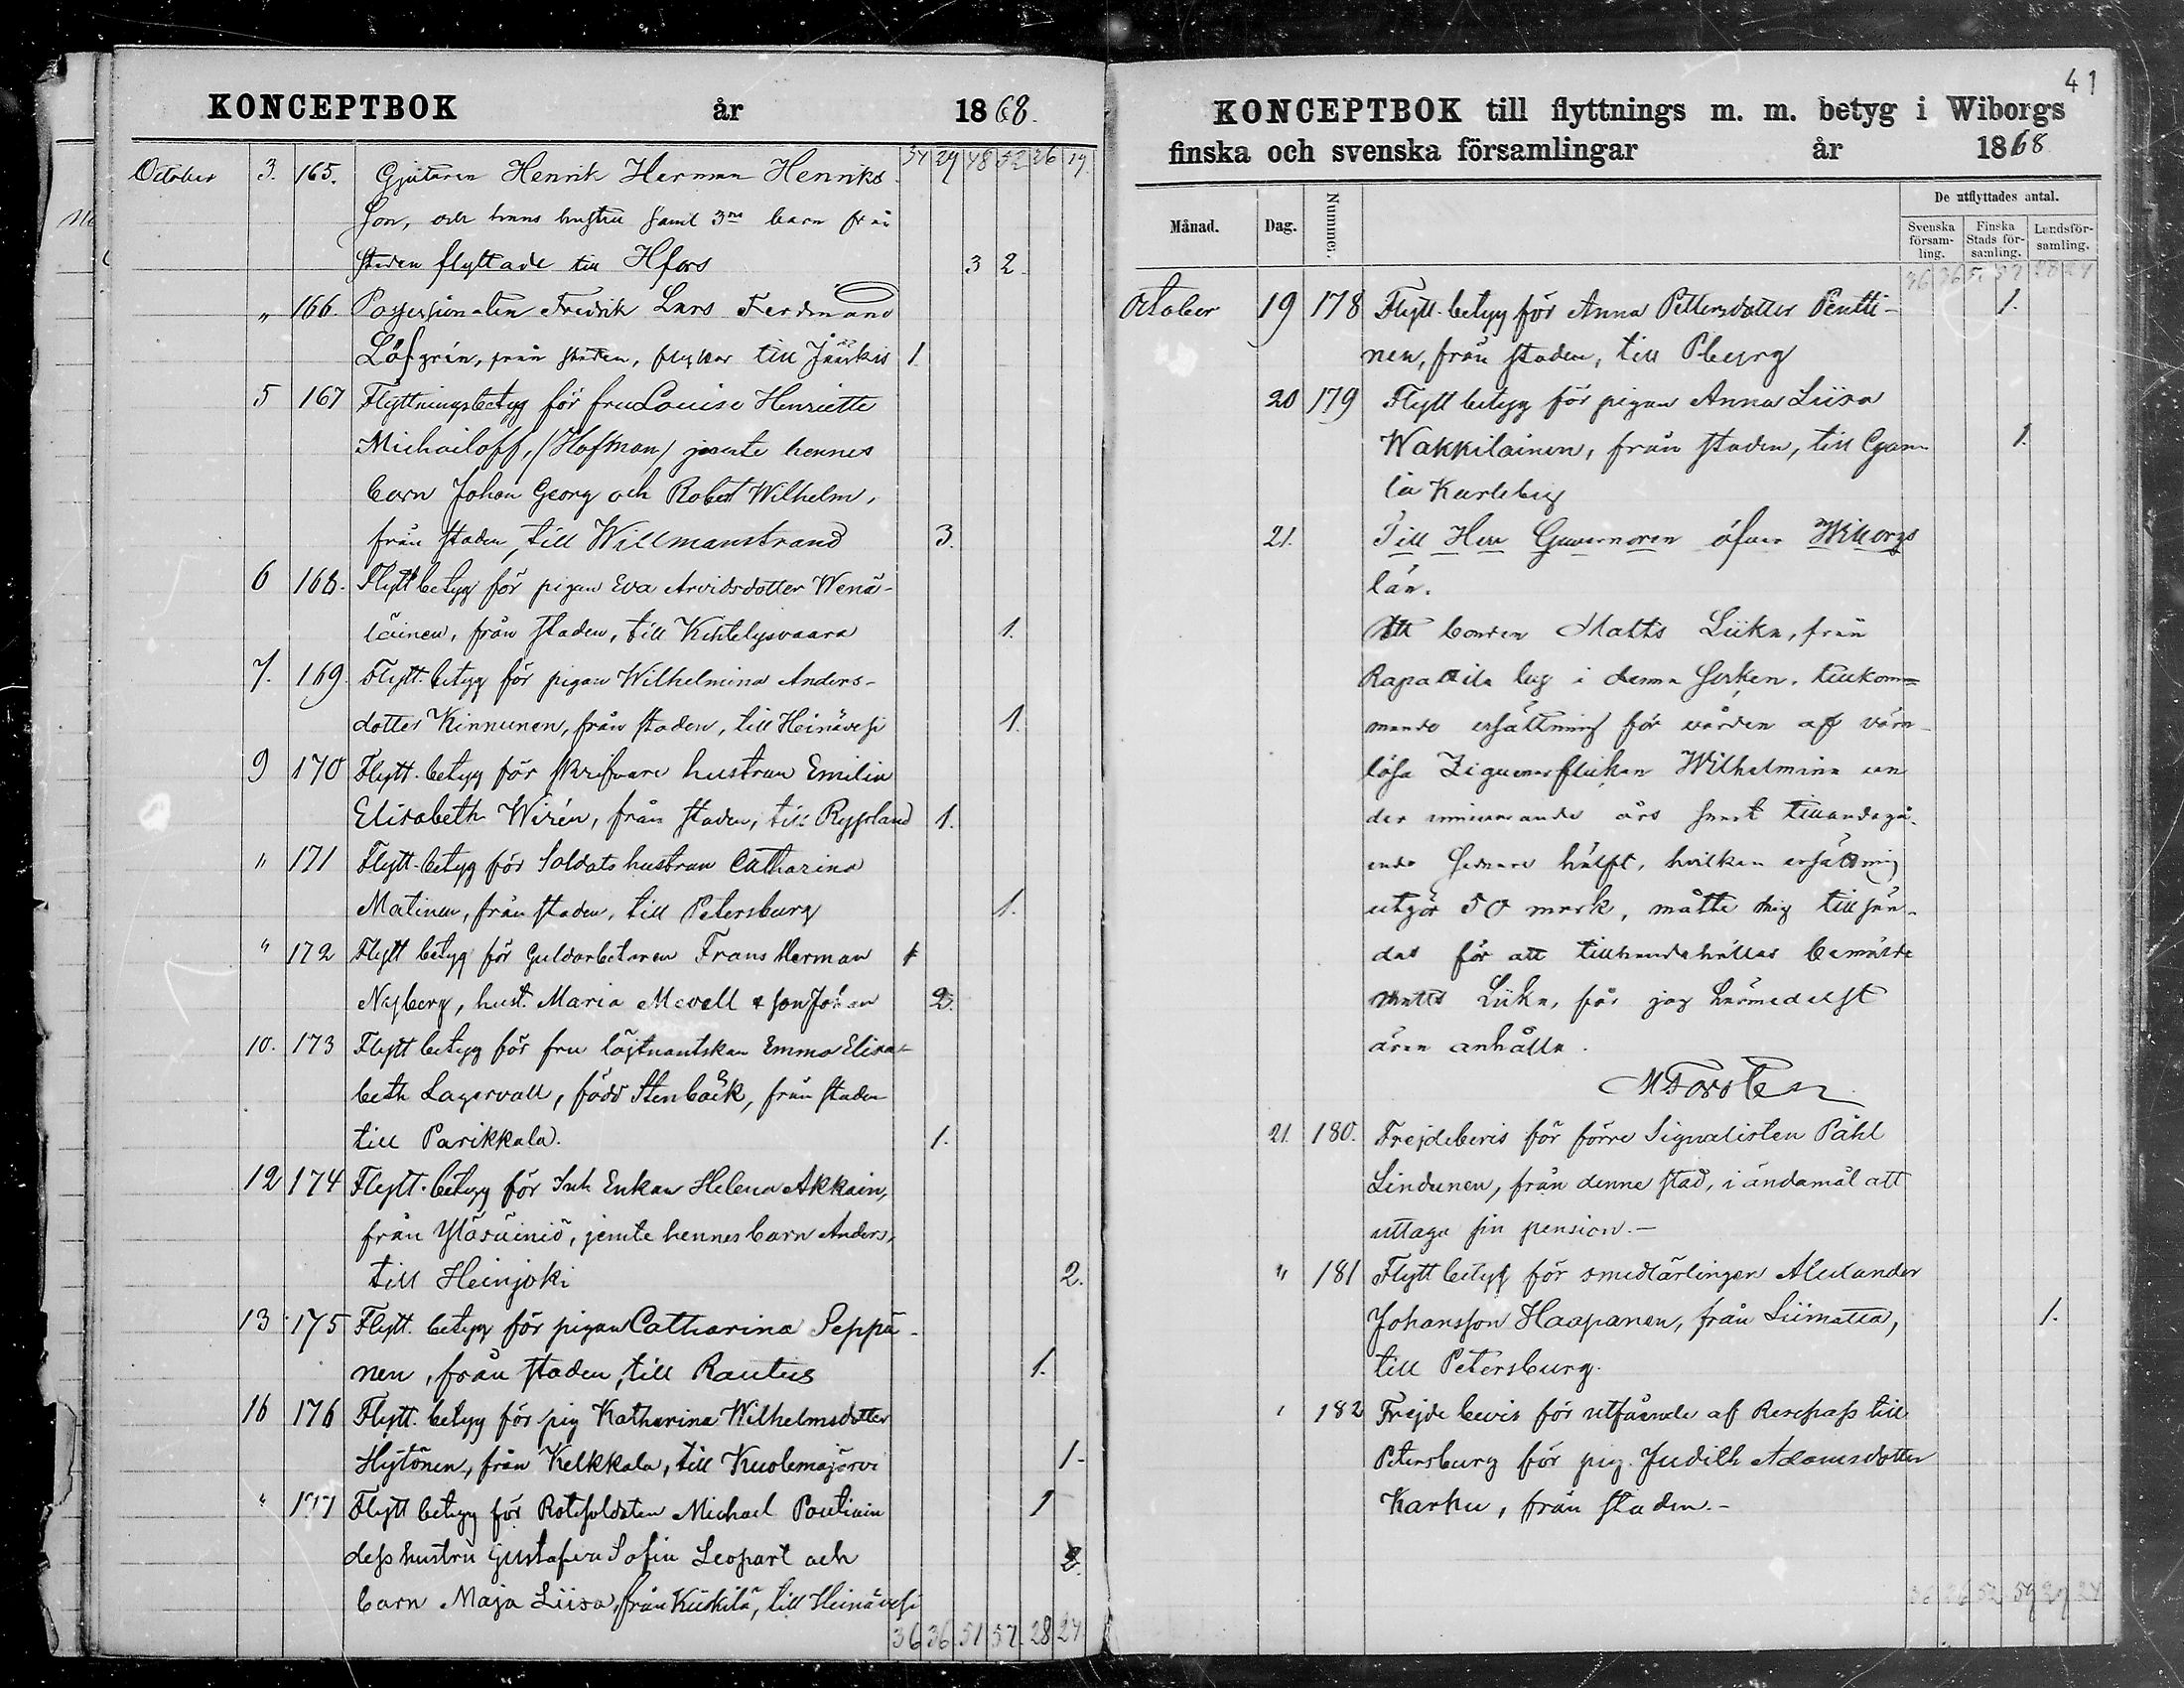 KONCEPTBOK år 1868.
34 29 48 52 26 19
October 3. 165. Gjutaren Henrik Herman Henriks
son, och hans hustru samt 3ne barn från
staden flyttade till Hfors 3 2
" 166. Possessionaten Fredrik Lars Ferdinand
Löfgrén, från staden, flyttar till Jääskis 1
5 167 Flyttningsbetyg för fru Louise Henriette
Michailoff, /Hofman/ jemte hennes
barn Johan Georg och Robert Wilhelm,
från staden, till Willmanstrand 3.
6 168. Flytt betyg för pigan Eva Arvidsdotter Wenä-
läinen, från staden, till Kihtelysvaara 1.
7. 169. Flytt. betyg för pigan Wilhelmina Anders-
dotter Kinnunen, från staden, till Heinävesi 1.
9 170 Flytt. betyg för skrifvare hustrun Emilia
Elisabeth Wirén, från staden, till Ryssland 1.
" 171 Flytt. betyg för Soldats hustrun Catharina
Matinen, från staden, till Petersburg 1.
" 172 Flytt betyg för Guldarbetaren Frans Herman 1
Nyberg, hust. Maria Mevell & son Johan 2.
10. 173 Flytt betyg för fru löjtnantskan Emma Elisa-
beth Lagervall, född Stenbäck, från staden
till Parikkala. 1.
12 174 Flytt. betyg för Inh. Enkan Helena Akkain,
från Yläsäiniö, jemte hennes barn Anders,
till Heinjoki 2.
13 175 Flytt. betyg för pigan Catharina Seppä-
nen, från staden, till Rautus 1.
16 176 Flytt. betyg för pig Katharina Wilhelmsdotter
Hytönen, från Kelkkala, till Kuolemajärvi 1-
" 177 Flytt betyg för Rotesoldaten Michael Poutiain
dess hustru Gustafva Sofia Leopart och 1 2.
barn Maja Liisa, från Kiiskilä, till Heinävesi
36 36 51 57 28 24
41
KONCEPTBOK till flyttnings m. m. betyg i Wiborgs
finska och svenska församlingar år 1868
Månad. Dag. Nummer. De utflyttades antal.
Svenska församling. Finska Stads församling. Landsförsamling.
36 36 51 57 28 24
October 19 178 Flytt. betyg för Anna Pettersdotter Pentti- 1.
nen, från staden, till Pburg
20 179 Flytt betyg för pigan Anna Liisa
Wakkilainen, från staden, till Gam- 1.
la Karleby
21. Till Herr Guvernoren öfver Wiborgs
län.
Att bonden Matts Liika, från
Rapattila by i denna socken, tillkom-
mande ersättning för vården af värn-
lösa Zigenarflickan Wilhelmina un
der innevarande års
ende senare hälft, hvilken ersättning
utgör 50 mark, måtte mig tillsän-
das för att tillhandahållas bemälde
Matts Liika, får jag härmedelst
äran anhålla.
M Forstén
21. 180. Frejdebevis för förre Signalisten Påhl
Lindunen, från denne stad, i ändamål att
uttaga sin pension.-
" 181 Flytt betyg för smedlärlingen Alexander
Johansson Haapanen, från Liimatta, 1.
till Petersburg.
" 182 Frejde bevis för utfående af Resepass till
Petersburg för pig. Judith Adamsdotter
Karhu, från staden.-
36 36 52 59 29 24